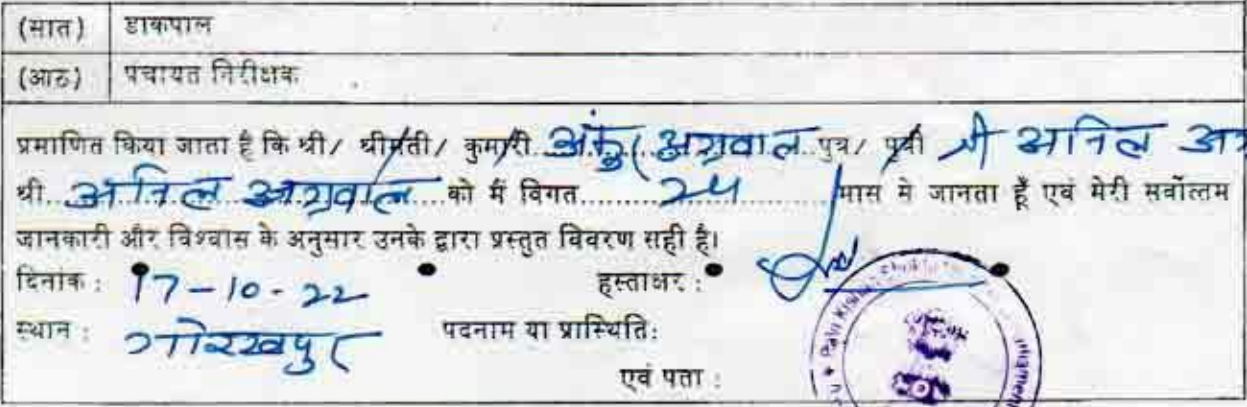 (सात) डाकपाल
(आठ) पंचायत निरीक्षक
प्रमाणित किया जाता है कि श्री/ श्रीमती/ कुमारी..अंकुर अग्रवाल..पुत्र/ पुत्री श्री अनिल
श्री..अनिल अग्रवाल..को मैं विगत....24....मास से जानता हूँ एवं मेरी सर्वोत्तम
जानकारी और विश्वास के अनुसार उनके द्वारा प्रस्तुत विवरण सही है।
दिनांक : 17-10-22 हस्ताक्षर :
स्थान : गोरखपुर पदनाम या प्रास्थिति:
एवं पता :